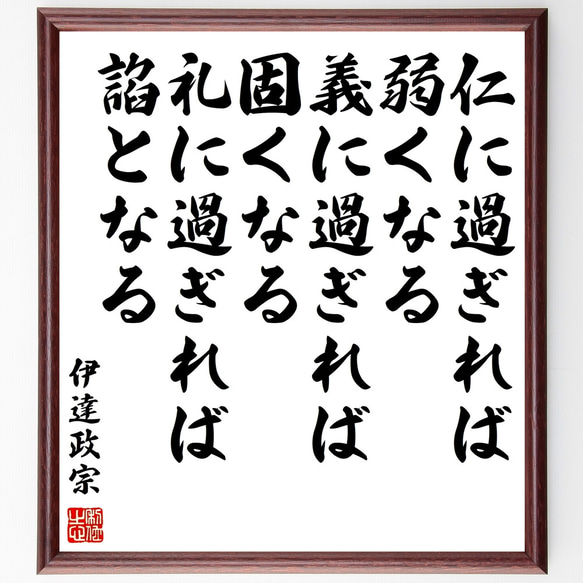 仁に過ぎれば
弱くなる
義に過ぎれば
固くなる
礼に過ぎれば
諂となる
伊達政宗